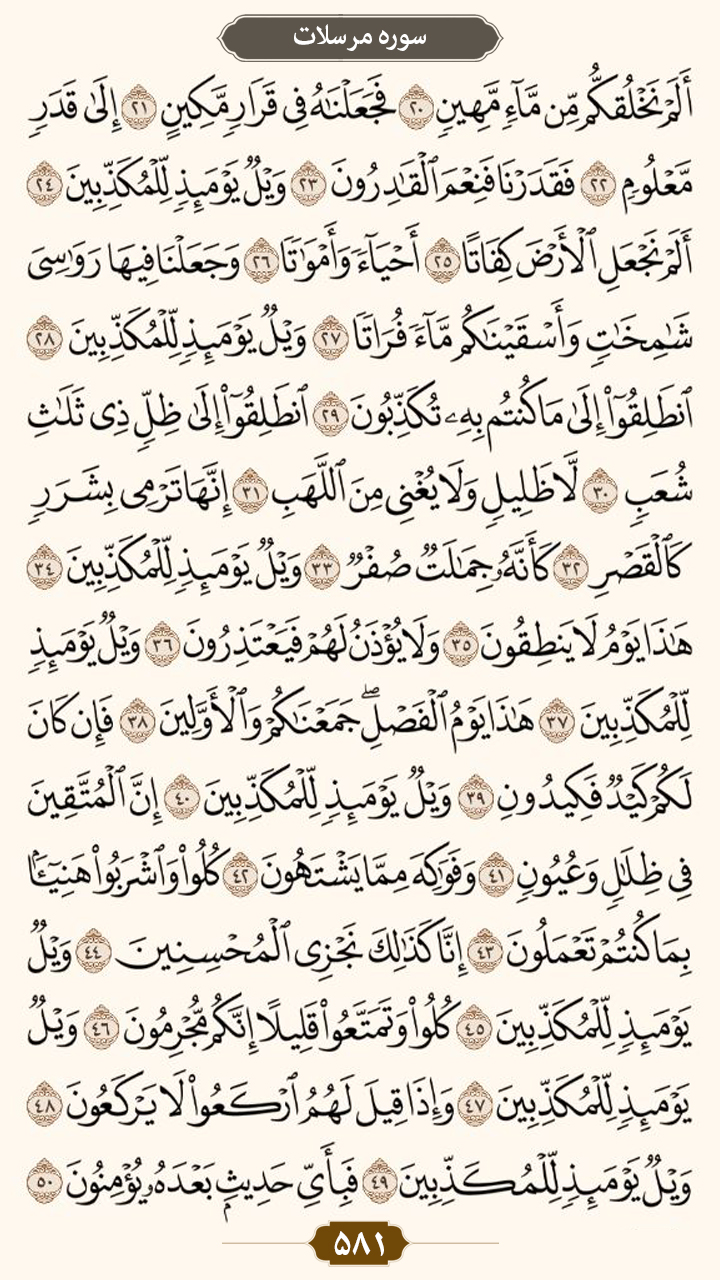 سوره مرسلات
أَلَمْ نَخْلُقكُّم مِّن مَّآءٍ مَّهِينٍ ٢٠ فَجَعَلْنَٰهُ فِى قَرَارٍ مَّكِينٍ ٢١ إِلَىٰ قَدَرٍ
مَّعْلُومٍ ٢٢ فَقَدَرْنَا فَنِعْمَ ٱلْقَٰدِرُونَ ٢٣ وَيْلٌ يَوْمَئِذٍ لِّلْمُكَذِّبِينَ ٢٤
أَلَمْ نَجْعَلِ ٱلْأَرْضَ كِفَاتًا ٢٥ أَحْيَآءً وَأَمْوَٰتًا ٢٦ وَجَعَلْنَا فِيهَا رَوَٰسِىَ
شَٰمِخَٰتٍ وَأَسْقَيْنَٰكُم مَّآءً فُرَاتًا ٢٧ وَيْلٌ يَوْمَئِذٍ لِّلْمُكَذِّبِينَ ٢٨
ٱنطَلِقُوٓا۟ إِلَىٰ مَا كُنتُم بِهِۦ تُكَذِّبُونَ ٢٩ ٱنطَلِقُوٓا۟ إِلَىٰ ظِلٍّ ذِى ثَلَٰثِ
شُعَبٍ ٣٠ لَّا ظَلِيلٍ وَلَا يُغْنِى مِنَ ٱللَّهَبِ ٣١ إِنَّهَا تَرْمِى بِشَرَرٍ
كَٱلْقَصْرِ ٣٢ كَأَنَّهُۥ جِمَٰلَتٌ صُفْرٌ ٣٣ وَيْلٌ يَوْمَئِذٍ لِّلْمُكَذِّبِينَ ٣٤
هَٰذَا يَوْمُ لَا يَنطِقُونَ ٣٥ وَلَا يُؤْذَنُ لَهُمْ فَيَعْتَذِرُونَ ٣٦ وَيْلٌ يَوْمَئِذٍ
لِّلْمُكَذِّبِينَ ٣٧ هَٰذَا يَوْمُ ٱلْفَصْلِ ۖ جَمَعْنَٰكُمْ وَٱلْأَوَّلِينَ ٣٨ فَإِن كَانَ
لَكُمْ كَيْدٌ فَكِيدُونِ ٣٩ وَيْلٌ يَوْمَئِذٍ لِّلْمُكَذِّبِينَ ٤٠ إِنَّ ٱلْمُتَّقِينَ
فِى ظِلَٰلٍ وَعُيُونٍ ٤١ وَفَوَٰكِهَ مِمَّا يَشْتَهُونَ ٤٢ كُلُوا۟ وَٱشْرَبُوا۟ هَنِيٓـًٔۢا
بِمَا كُنتُمْ تَعْمَلُونَ ٤٣ إِنَّا كَذَٰلِكَ نَجْزِى ٱلْمُحْسِنِينَ ٤٤ وَيْلٌ
يَوْمَئِذٍ لِّلْمُكَذِّبِينَ ٤٥ كُلُوا۟ وَتَمَتَّعُوا۟ قَلِيلًا إِنَّكُم مُّجْرِمُونَ ٤٦ وَيْلٌ
يَوْمَئِذٍ لِّلْمُكَذِّبِينَ ٤٧ وَإِذَا قِيلَ لَهُمُ ٱرْكَعُوا۟ لَا يَرْكَعُونَ ٤٨
وَيْلٌ يَوْمَئِذٍ لِّلْمُكَذِّبِينَ ٤٩ فَبِأَىِّ حَدِيثٍۭ بَعْدَهُۥ يُؤْمِنُونَ ٥٠
۵۸۱